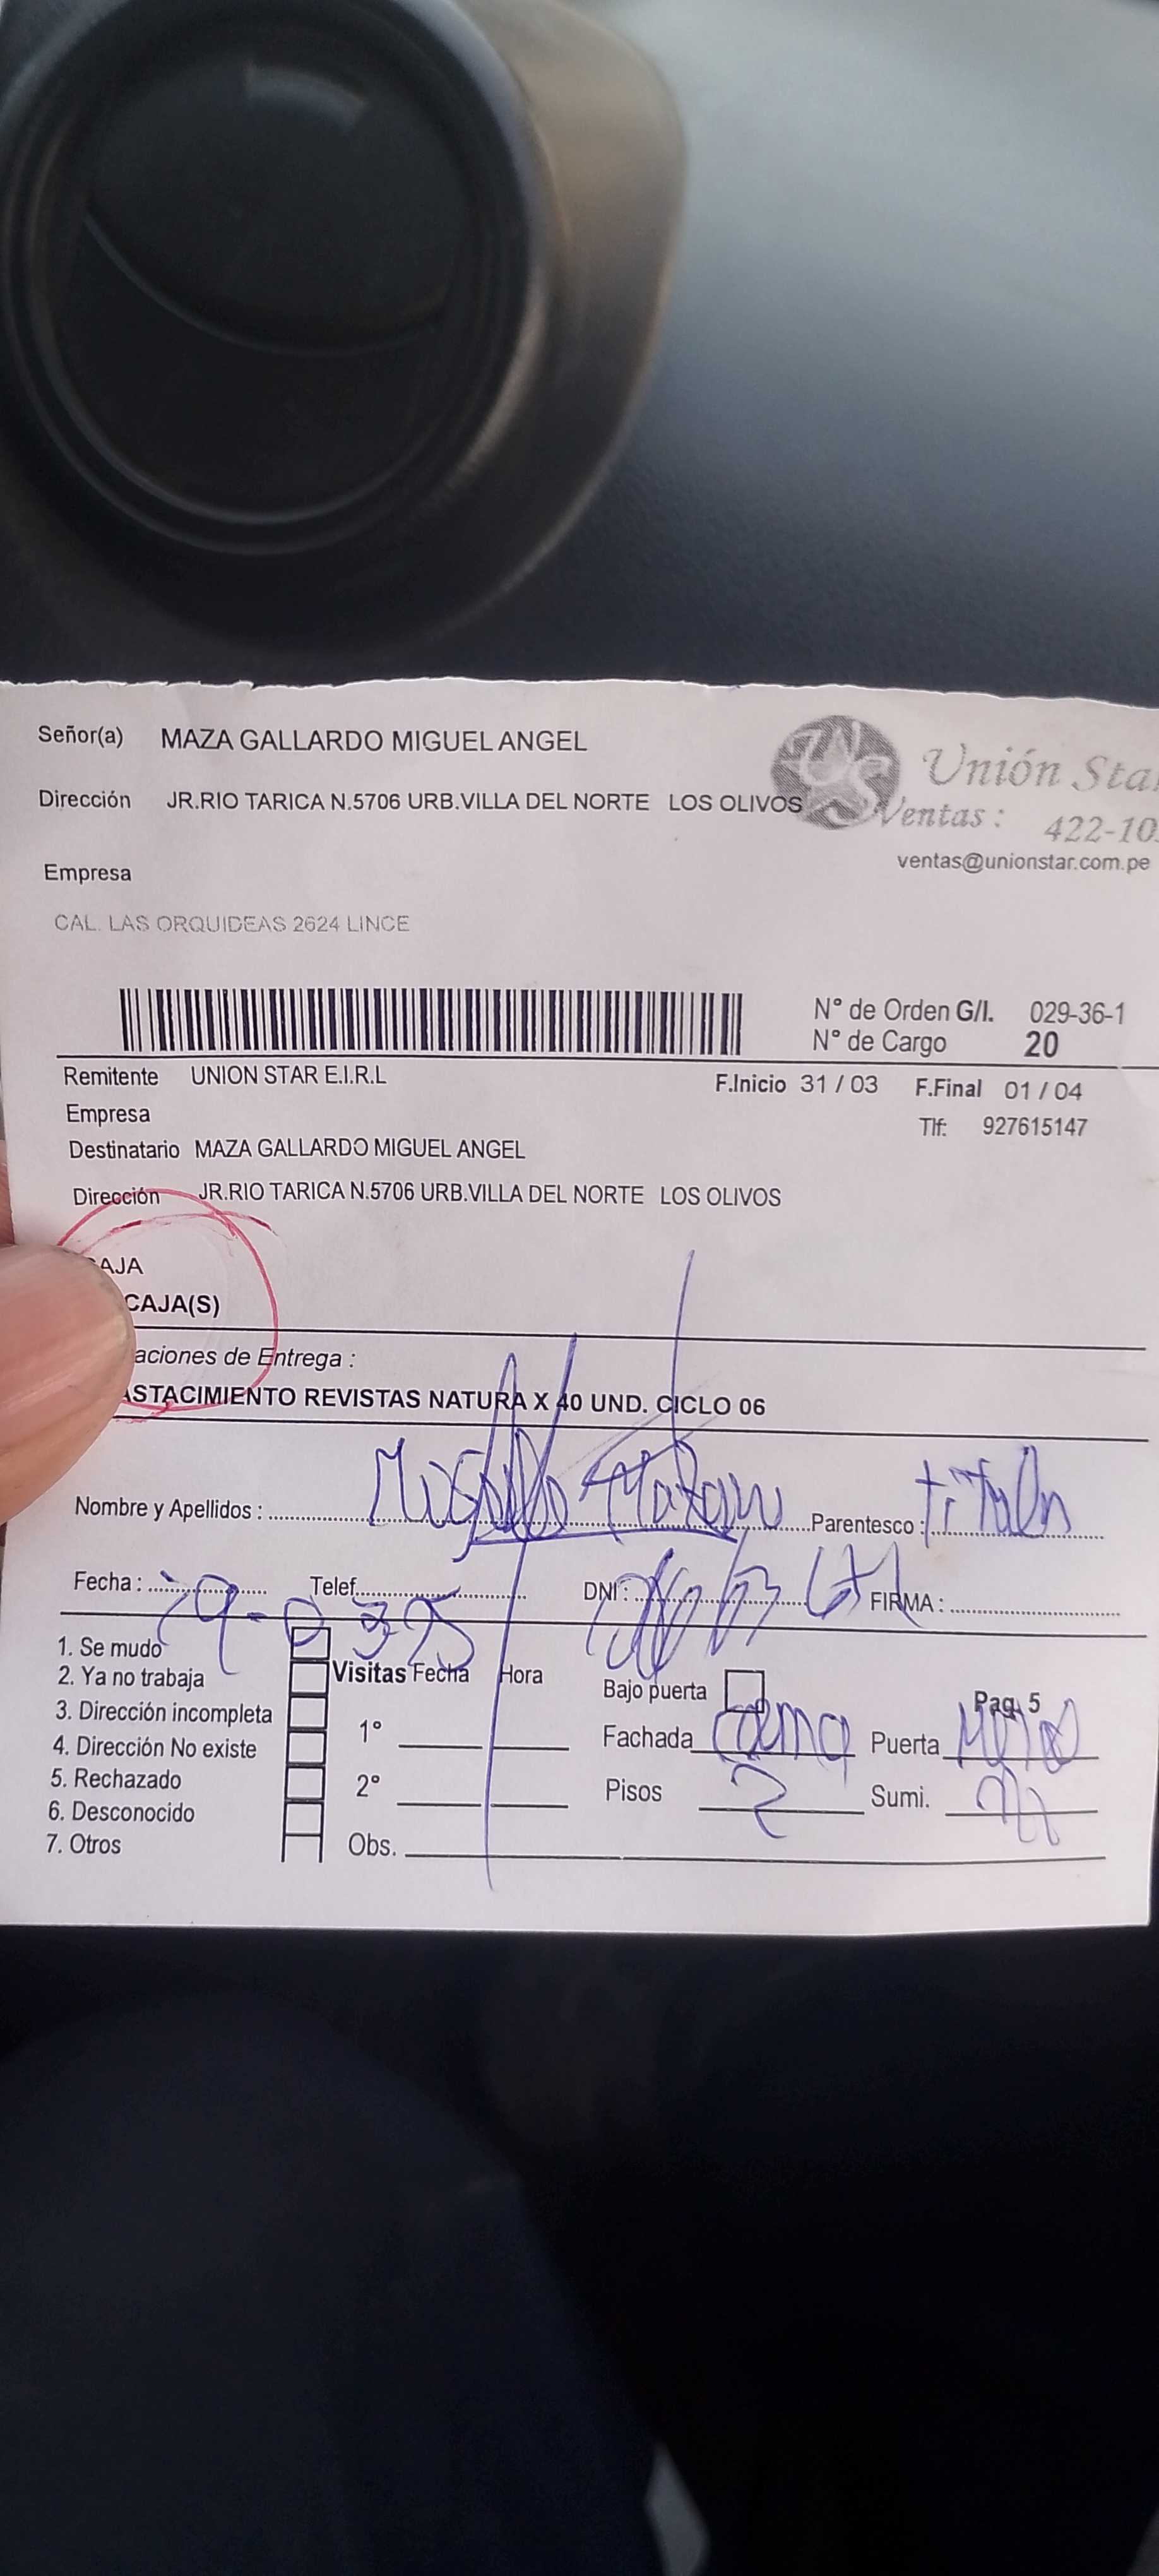 Señor(a) MAZA GALLARDO MIGUEL ANGEL
Unión Sta
Dirección JR.RIO TARICA N.5706 URB.VILLA DEL NORTE LOS OLIVOS
Ventas : 422-10
ventas@unionstar.com.pe
Empresa
CAL. LAS ORQUIDEAS 2624 LINCE
N° de Orden G/I. 029-36-1
N° de Cargo 20
Remitente UNION STAR E.I.R.L
F.Inicio 31 / 03 F.Final 01 / 04
Empresa
Tlf: 927615147
Destinatario MAZA GALLARDO MIGUEL ANGEL
Dirección JR.RIO TARICA N.5706 URB.VILLA DEL NORTE LOS OLIVOS
AJA
CAJA(S)
aciones de Entrega :
ASTACIMIENTO REVISTAS NATURA X 40 UND. CICLO 06
Nombre y Apellidos : Parentesco :
Fecha : Telef. DNI : FIRMA :
1. Se mudo
2. Ya no trabaja
3. Dirección incompleta
4. Dirección No existe
5. Rechazado
6. Desconocido
7. Otros
Visitas Fecha Hora
1°
2°
Obs.
Bajo puerta Pag. 5
Fachada Puerta
Pisos 2 Sumi.